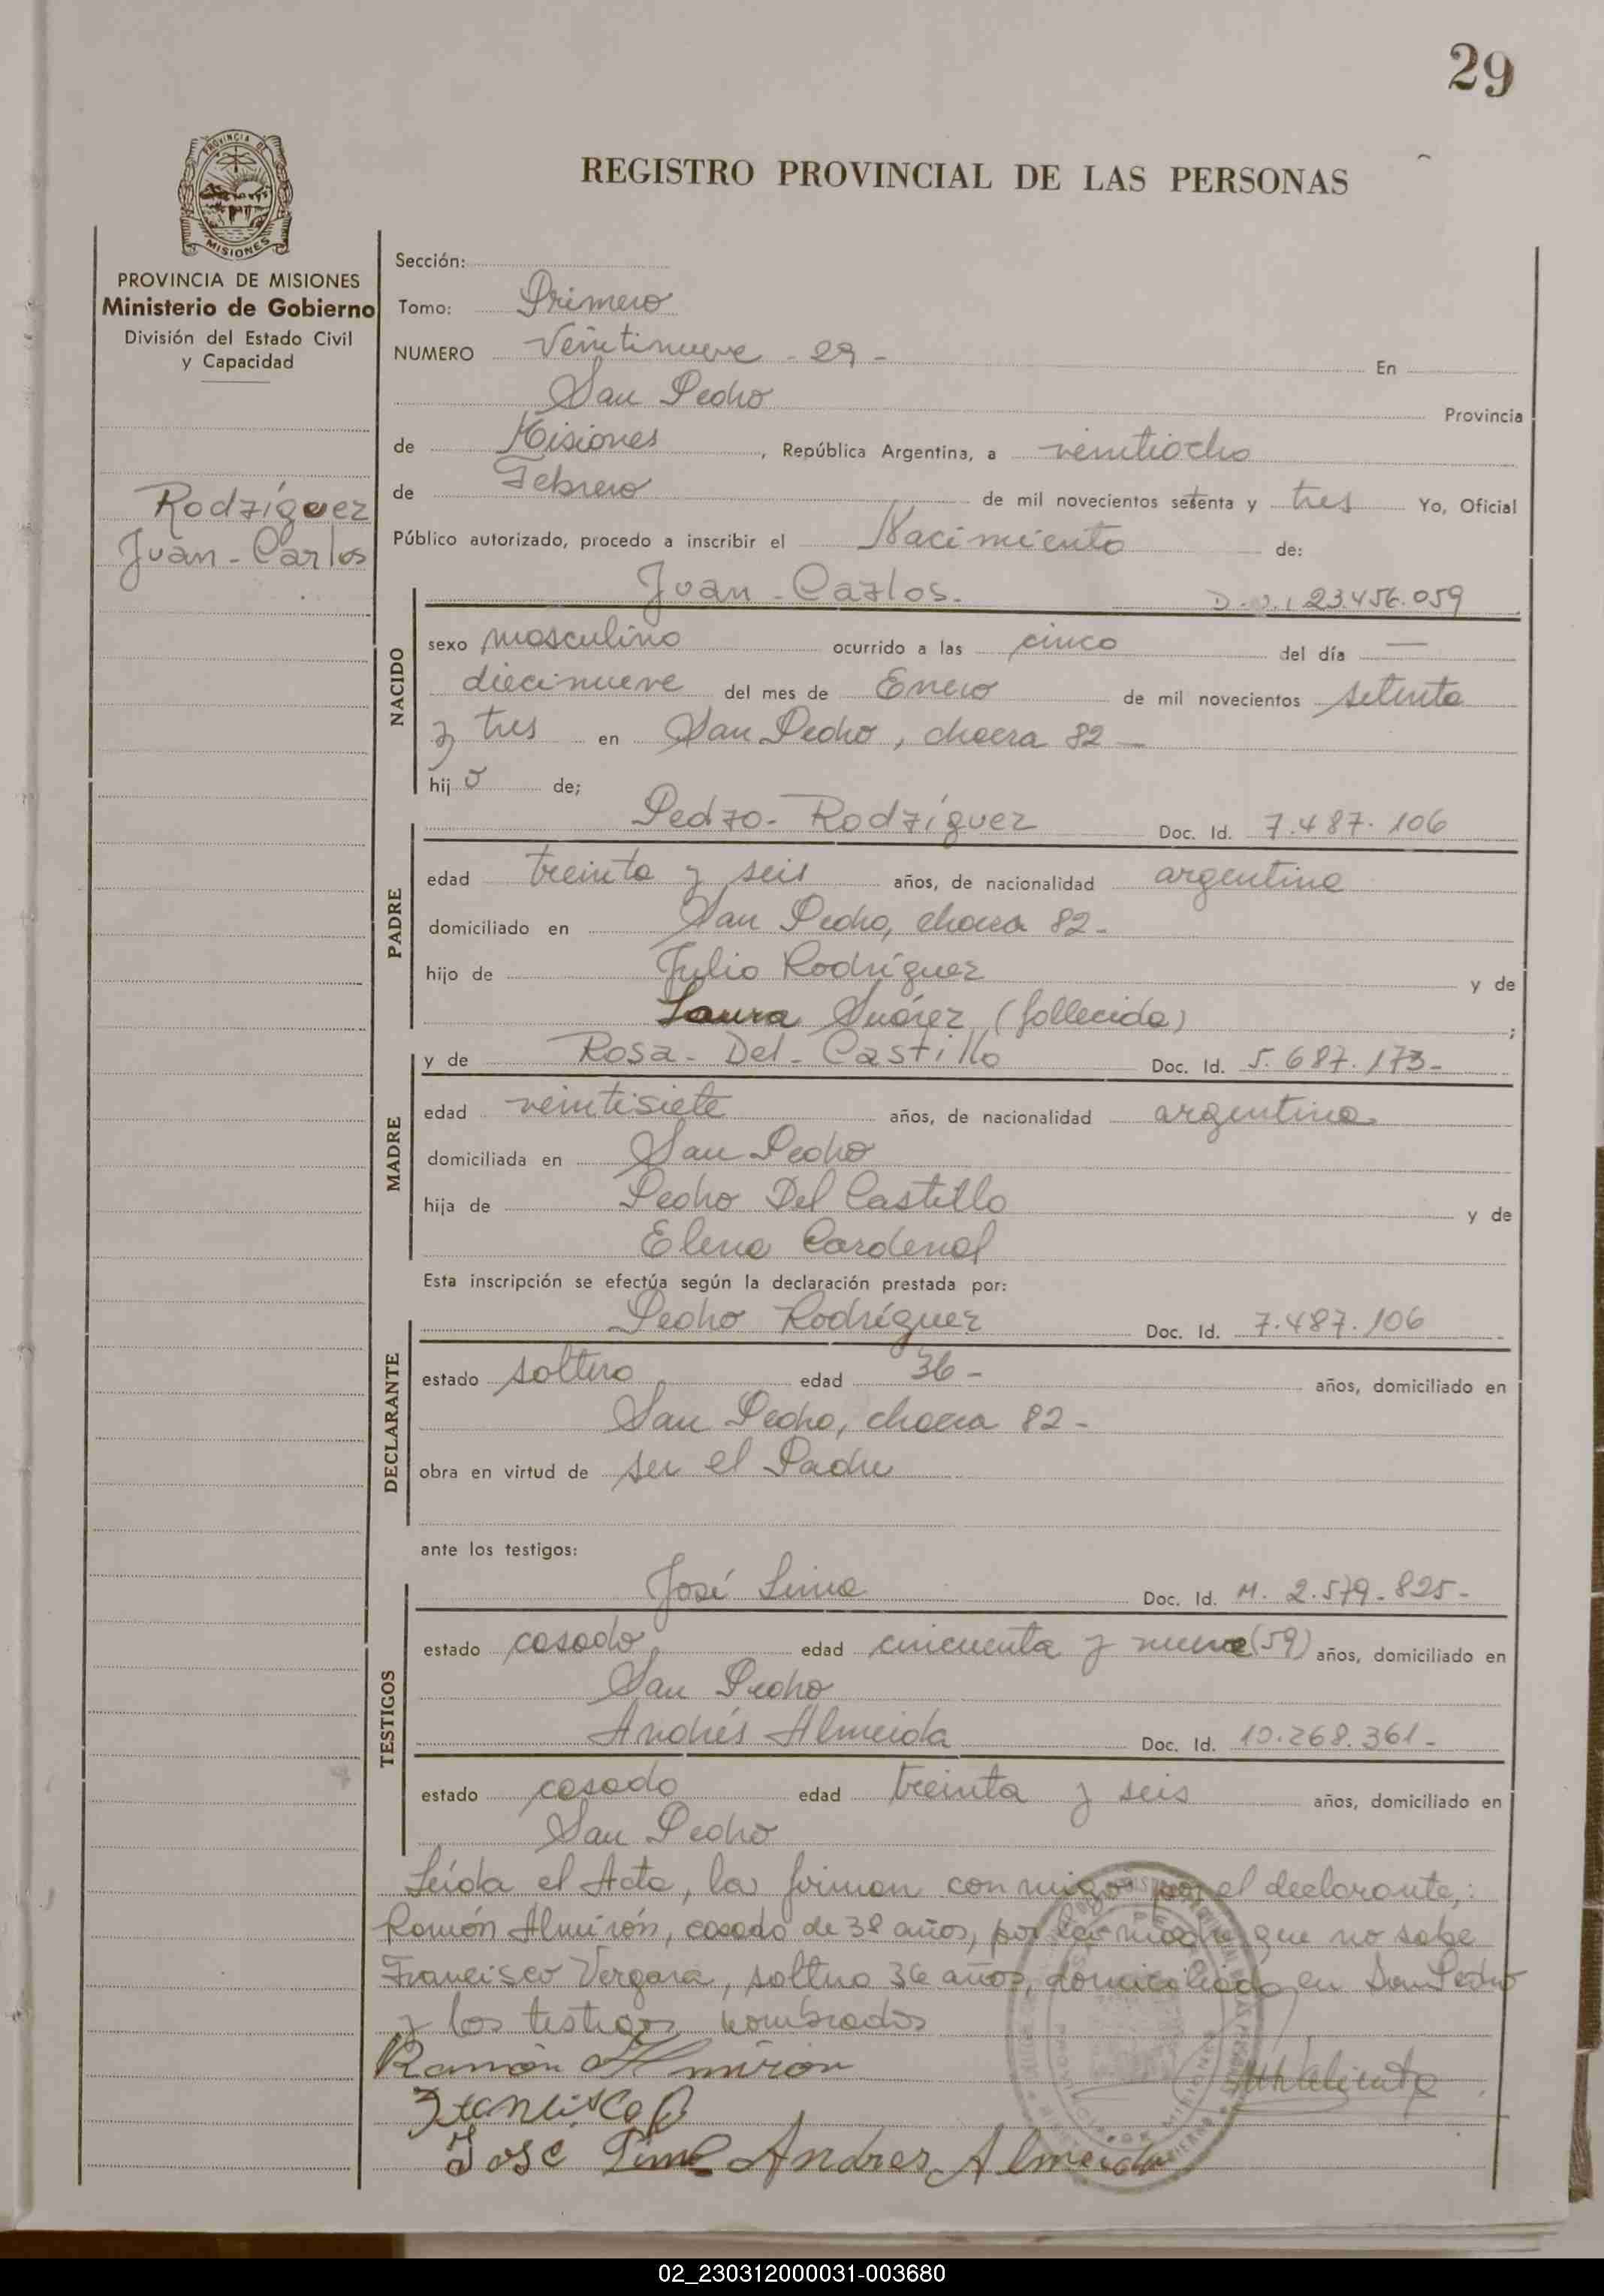 29
REGISTRO PROVINCIAL DE LAS PERSONAS
PROVINCIA DE MISIONES
Ministerio de Gobierno
División del Estado Civil
y Capacidad
Rodríguez
Juan-Carlos
Sección:
Tomo: Primero
NUMERO Veintinueve - 29 - En
San Pedro Provincia
de Misiones, República Argentina, a veintiocho
de Febrero de mil novecientos setenta y tres Yo, Oficial
Público autorizado, procedo a inscribir el Nacimiento de:
Juan-Carlos. D.N.I 23.456.059
NACIDO
sexo masculino ocurrido a las cinco del día —
diecinueve del mes de Enero de mil novecientos setenta
y tres en San Pedro, chacra 82 —
hij o de;
Pedro-Rodríguez Doc. Id. 7.487.106
PADRE
edad treinta y seis años, de nacionalidad argentina
domiciliado en San Pedro, chacra 82-
hijo de Julio Rodríguez y de
Laura Suárez (fallecida) ;
y de Rosa-Del-Castillo Doc. Id. 5.687.173-
MADRE
edad veintisiete años, de nacionalidad argentina
domiciliada en San Pedro
hija de Pedro Del Castillo y de
Elena Cardenal
Esta inscripción se efectúa según la declaración prestada por:
Pedro Rodríguez Doc. Id. 7.487.106
DECLARANTE
estado soltero edad 36- años, domiciliado en
San Pedro, chacra 82-
obra en virtud de ser el Padre
ante los testigos:
José Lima Doc. Id. M. 2.579.825-
TESTIGOS
estado casado edad cincuenta y nueve (59) años, domiciliado en
San Pedro
Andrés Almeida Doc. Id. 10.268.361-
estado casado edad treinta y seis años, domiciliado en
San Pedro
Leída el Acta, la firman conmigo por el declarante,:
Ramón Almirón, casado de 38 años, por la madre que no sabe
Francisco Vergara, soltero 36 años, domiciliado en San Pedro
y los testigos nombrados
Ramón Almirón
José Lima Andres Almeida
02_230312000031-003680